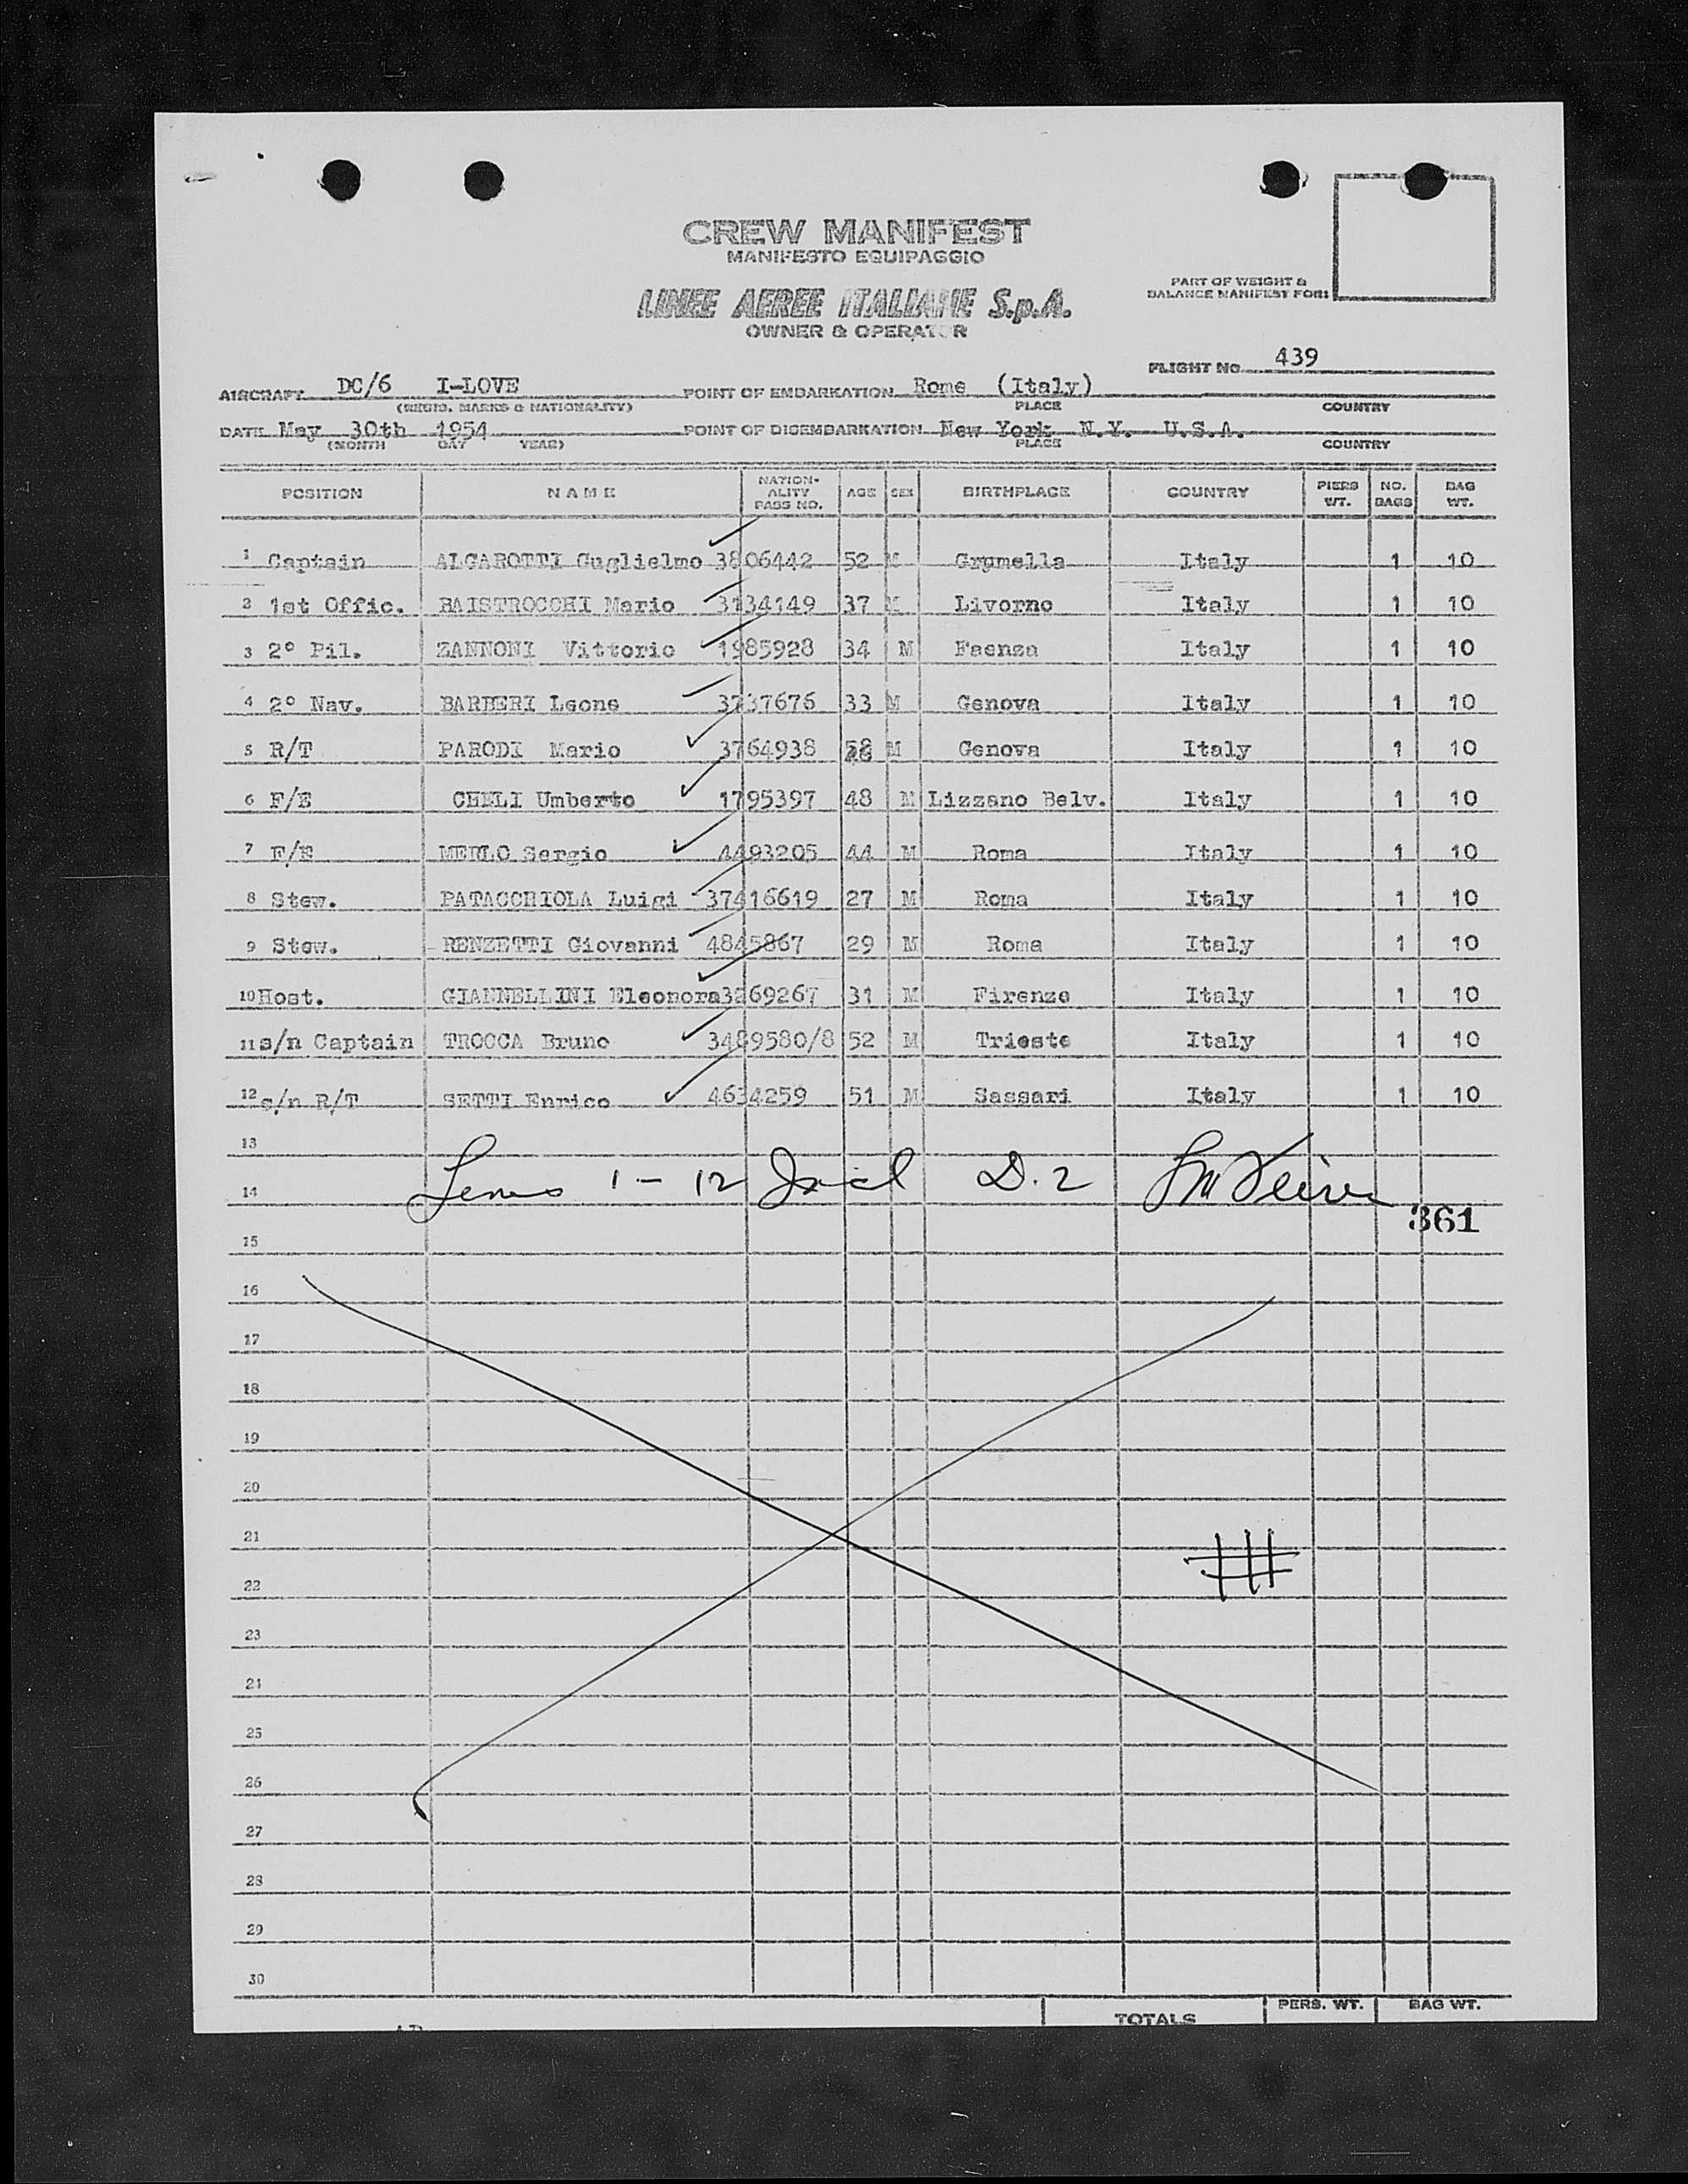 CREW MANIFEST
MANIFESTO EQUIPAGGIO
PART OF WEIGHT &
BALANCE MANIFEST FOR:
LINEE AEREE ITALIANE S.p.A.
OWNER & OPERATOR
FLIGHT NO. 439
AIRCRAFT DC/6 I-LOVE POINT OF EMBARKATION Rome (Italy)
(REGIS. MARKS & NATIONALITY) PLACE COUNTRY
DATE May 30th 1954 POINT OF DISEMBARKATION New York N.Y. U.S.A.
(MONTH DAY YEAR) PLACE COUNTRY
POSITION NAME NATION-ALITY PASS NO. AGE SEX BIRTHPLACE COUNTRY PIERS WT. NO. BAGS BAG WT.
1 Captain ALGAROTTI Guglielmo 3806442 52 M Grumella Italy 1 10
2 1st Offic. BAISTROCCHI Mario 3134149 37 M Livorno Italy 1 10
3 2° Pil. ZANNONI Vittorio 1985928 34 M Faenza Italy 1 10
4 2° Nav. BARBERI Leone 3737676 33 M Genova Italy 1 10
5 R/T PARODI Mario 3764938 M Genova Italy 1 10
6 F/E CHELI Umberto 1795397 48 M Lizzano Belv. Italy 1 10
7 F/E MERLO Sergio 4493205 44 M Roma Italy 1 10
8 Stew. PATACCHIOLA Luigi 37416619 27 M Roma Italy 1 10
9 Stew. RENZETTI Giovanni 4845867 29 M Roma Italy 1 10
10 Host. GIANNELLINI Eleonora 3269267 31 M Firenze Italy 1 10
11 s/n Captain TROCCA Bruno 3489580/8 52 M Trieste Italy 1 10
12 s/n R/T SETTI Enrico 4634259 51 M Sassari Italy 1 10
13
14 1 - 12 Incl D.2
361
15
16
17
18
19
20
21
22
23
24
25
26
27
28
29
30
TOTALS PERS. WT. BAG WT.